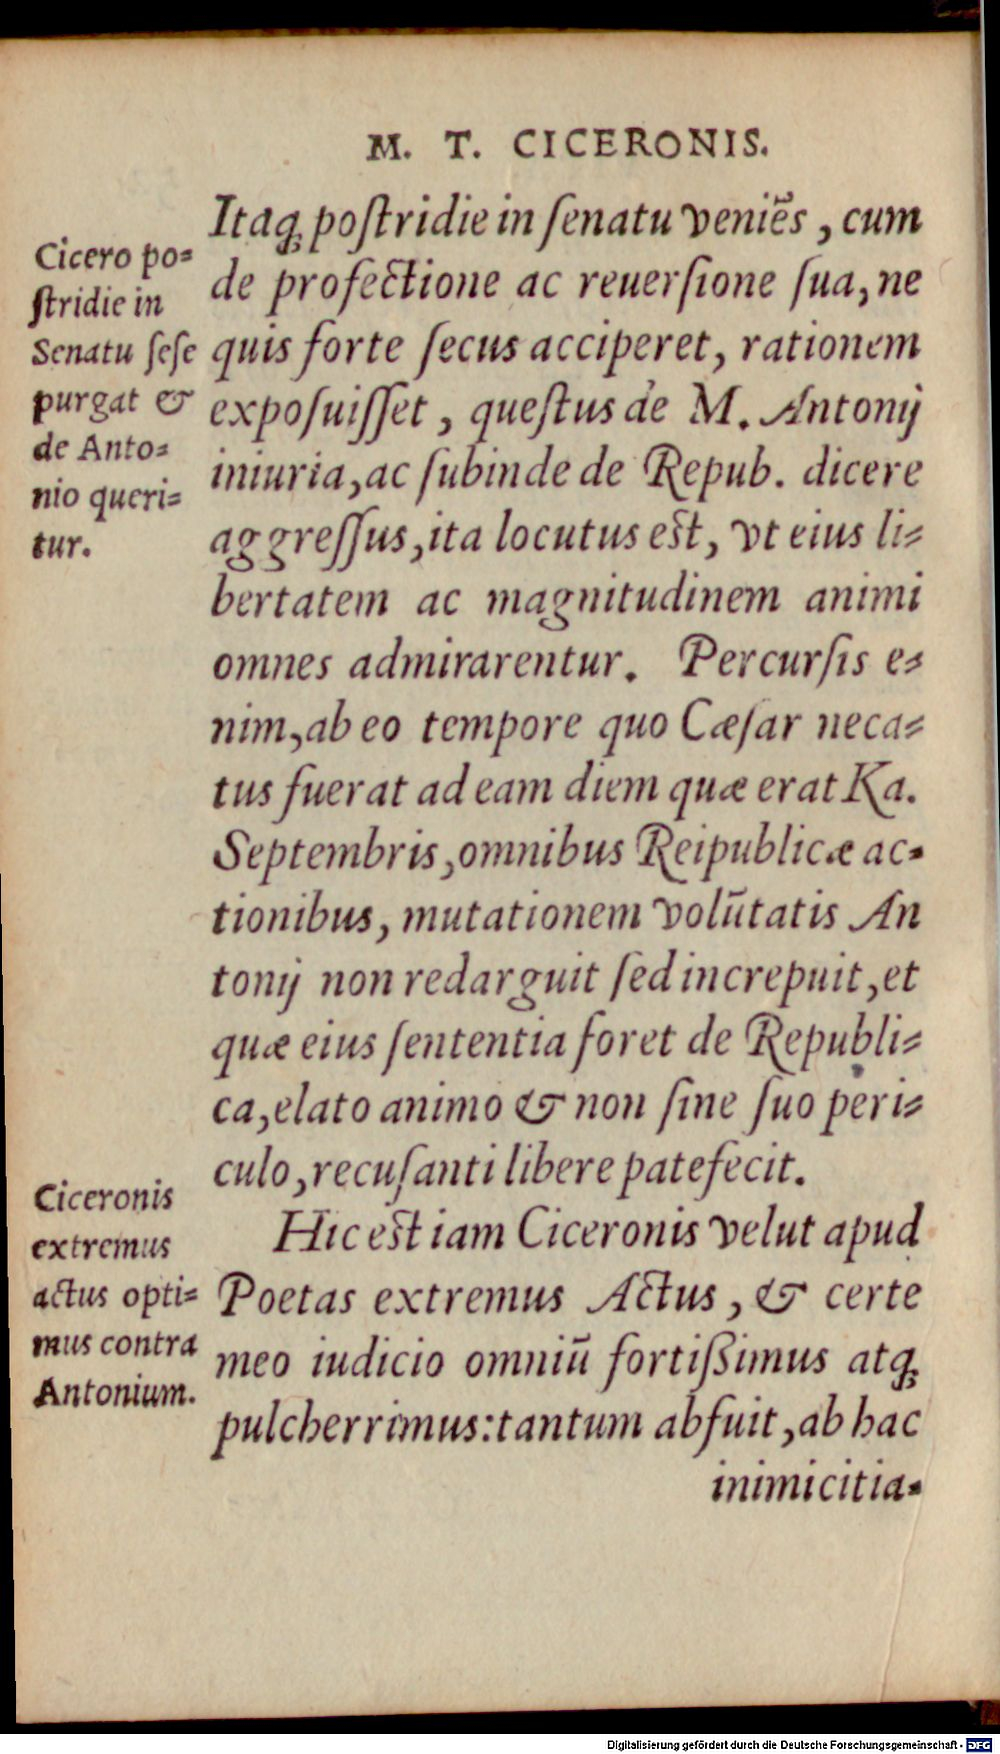 M. T. CICERONIS.
Itaq; poſtridie in ſenatu veniēs, cum
de profectione ac reuerſione ſua, ne
quis forte ſecus acciperet, rationem
expoſuiſſet, queſtus de M. Antonij
iniuria, ac ſubinde de Repub. dicere
aggreſſus, ita locutus est, vt eius li-
bertatem ac magnitudinem animi
omnes admirarentur. Percurſis e-
nim, ab eo tempore quo Cæſar neca-
tus fuerat ad eam diem quæ erat Ka.
Septembris, omnibus Reipublicæ ac-
tionibus, mutationem volūtatis An
tonij non redarguit ſed increpuit, et
quæ eius ſententia foret de Republi-
ca, elato animo & non ſine ſuo peri-
culo, recuſanti libere patefecit.
Hic est iam Ciceronis velut apud
Poetas extremus Actus, & certe
meo iudicio omniū fortißimus atq;
pulcherrimus: tantum abfuit, ab hac
inimicitia-
Cicero po-
ſtridie in
Senatu ſeſe
purgat &
de Anto-
nio queri-
tur.
Ciceronis
extremus
actus opti-
mus contra
Antonium.
Digitalisierung gefördert durch die Deutsche Forschungsgemeinschaft - DFG